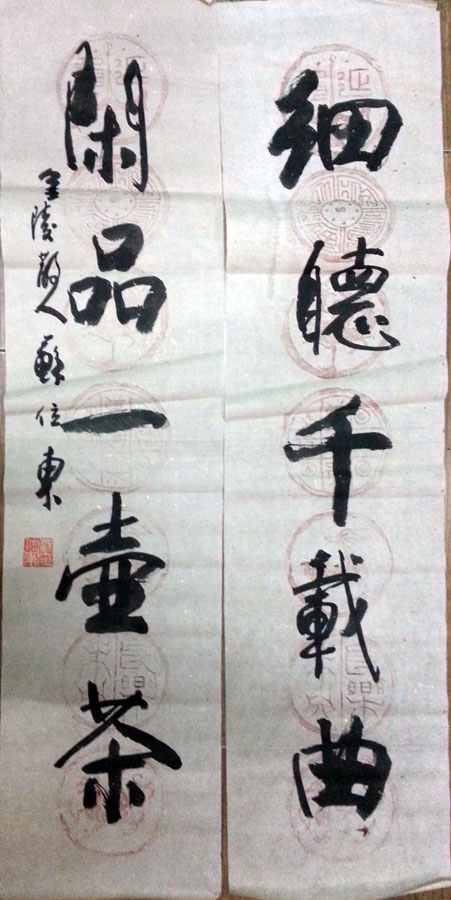 細聽千載曲
閑品一壺茶
金陵散人蘇位東